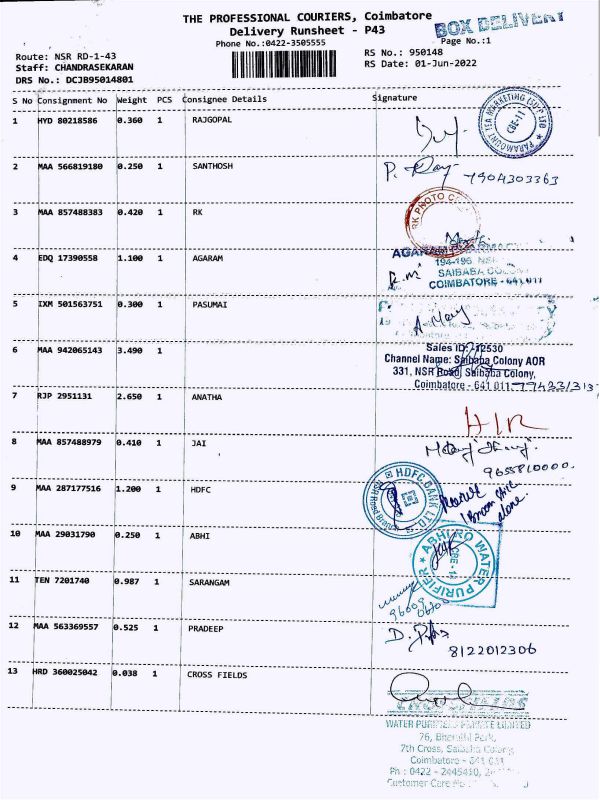 THE PROFESSIONAL COURIERS, Coimbatore
Delivery Runsheet - P43
BOX DELIVERY
Phone No.:0422-3505555
Page No.:1
Route: NSR RD-1-43
RS No.: 950148
Staff: CHANDRASEKARAN
RS Date: 01-Jun-2022
DRS No.: DCJB95014801
S No Consignment No Weight PCS Consignee Details Signature
1 HYD 80218586 0.360 1 RAJGOPAL
PARAMOUNT TEA MARKETING LTD
CBE-11
2 MAA 566819180 0.250 1 SANTHOSH
7904303363
3 MAA 857488383 0.420 1 RK
RK PHOTO
4 EDQ 17390558 1.100 1 AGARAM
AGARAM
194-196, NSR
SAIBABA COLONY
COIMBATORE - 641 011
5 IXM 501563751 0.300 1 PASUMAI
6 MAA 942065143 3.490 1
Sales ID:-12530
Channel Name: Saibaba Colony AOR
331, NSR Road Saibaba Colony,
Coimbatore - 641 011
7 RJP 2951131 2.650 1 ANATHA
8 MAA 857488979 0.410 1 JAI
9655810000.
9 MAA 287177516 1.200 1 HDFC
HDFC BANK LTD
10 MAA 29031790 0.250 1 ABHI
ABHIRO WATER PURIFIER
11 TEN 7201740 0.987 1 SARANGAM
12 MAA 563369557 0.525 1 PRADEEP
8122012306
13 HRD 360025042 0.038 1 CROSS FIELDS
WATER PURIFIERS PRIVATE LIMITED
76, Bharathi Park,
7th Cross, Saibaba Colony
Coimbatore - 641 011
Ph : 0422 - 2445410,
Customer Care No